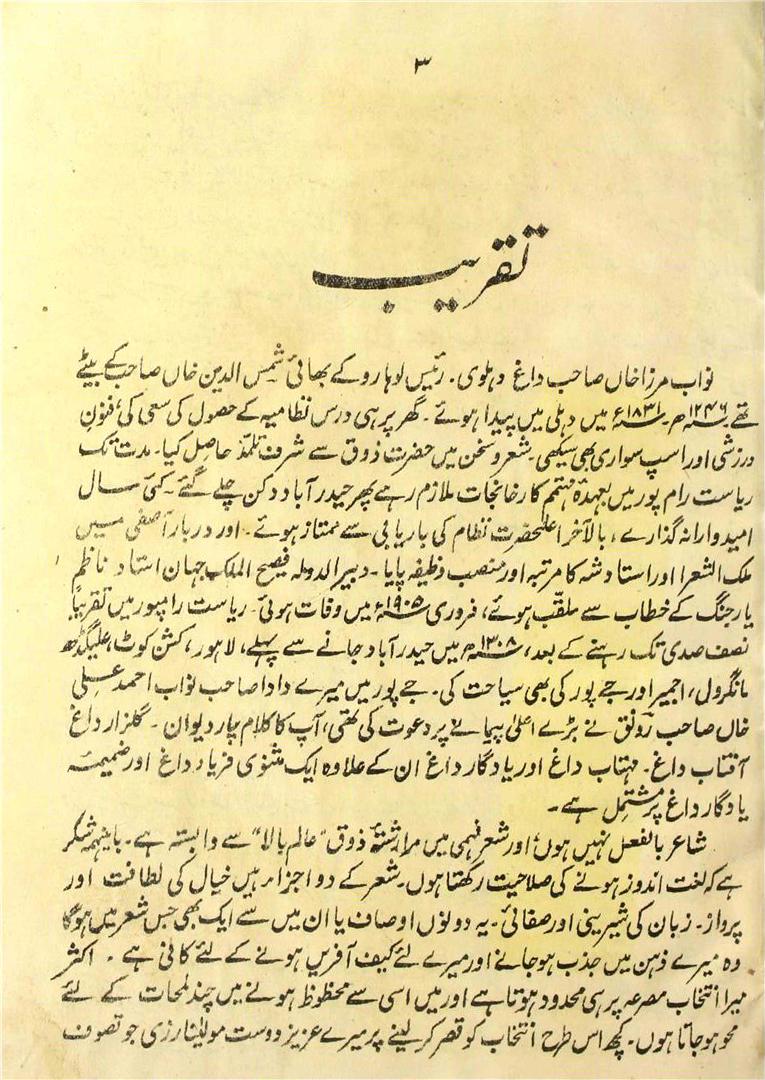 ۳
تقریب
نواب مرزا خاں صاحب داغ دہلوی۔ رئیس لوہارو کے بھائی شمس الدین خاں صاحب کے بیٹے
تھے ۱۲۴۶ھ ۱۸۳۱ء میں دہلی میں پیدا ہوئے۔ گھر پر ہی درس نظامیہ کے حصول کی سعی کی، فنونِ
ورزشی اور اسپ سواری بھی سیکھی۔ شعر و سخن میں حضرت ذوق سے شرف تلمذ حاصل کیا۔ مدت تک
ریاست رام پور میں بعہدہ مہتمم کارخانجات ملازم رہے پھر حیدر آباد دکن چلے گئے۔ کئی سال
امیدوارانہ گذارے، بالآخر اعلیٰحضرت نظام کی باریابی سے ممتاز ہوئے۔ اور دربار آصفی میں
ملک الشعرا اور استاد شہ کا مرتبہ اور منصب وظیفہ پایا۔ دبیر الدولہ فصیح الملک جہان استاد ناظم
یار جنگ کے خطاب سے ملقب ہوئے، فروری ۱۹۰۵ء میں وفات ہوئی۔ ریاست رامپور میں تقریباً
نصف صدی تک رہنے کے بعد، ۱۳۰۸ھ میں حیدر آباد جانے سے پہلے، لاہور، کشن کوٹ، علیگڈھ
مانگرول، اجمیر اور جے پور کی بھی سیاحت کی۔ جے پور میں میرے دادا صاحب نواب احمد علی
خاں صاحب رونق نے بڑے اعلیٰ پیمانے پر دعوت کی تھی، آپ کا کلام چار دیوان۔ گلزار داغ
آفتاب داغ۔ مہتاب داغ اور یادگار داغ ان کے علاوہ ایک مثنوی فریاد داغ اور ضمیمۂ
یادگار داغ پر مشتمل ہے۔
شاعر بالفعل نہیں ہوں، اور شعر فہمی میں مرا رشتۂ ذوق "عالم بالا" سے وابستہ ہے۔ باینہمہ شکر
ہے کہ لغت اندوز ہونے کی صلاحیت رکھتا ہوں۔ شعر کے دو اجزاء ہیں خیال کی لطافت اور
پرواز۔ زبان کی شیرینی اور صفائی۔ یہ دونوں اوصاف یا ان میں سے ایک بھی جس شعر میں ہوگا
وہ میرے ذہن میں جذب ہو جانے اور میرے لئے کیف آفریں ہونے کے لئے کافی ہے۔ اکثر
میرا انتخاب مصرعہ پر ہی محدود ہوتا ہے اور میں اسی سے محظوظ ہونے میں چند لمحات کے لئے
محو ہو جاتا ہوں۔ کچھ اس طرح انتخاب کو قصر کر لینے پر میرے عزیز دوست مولینا رزی جو تصوف